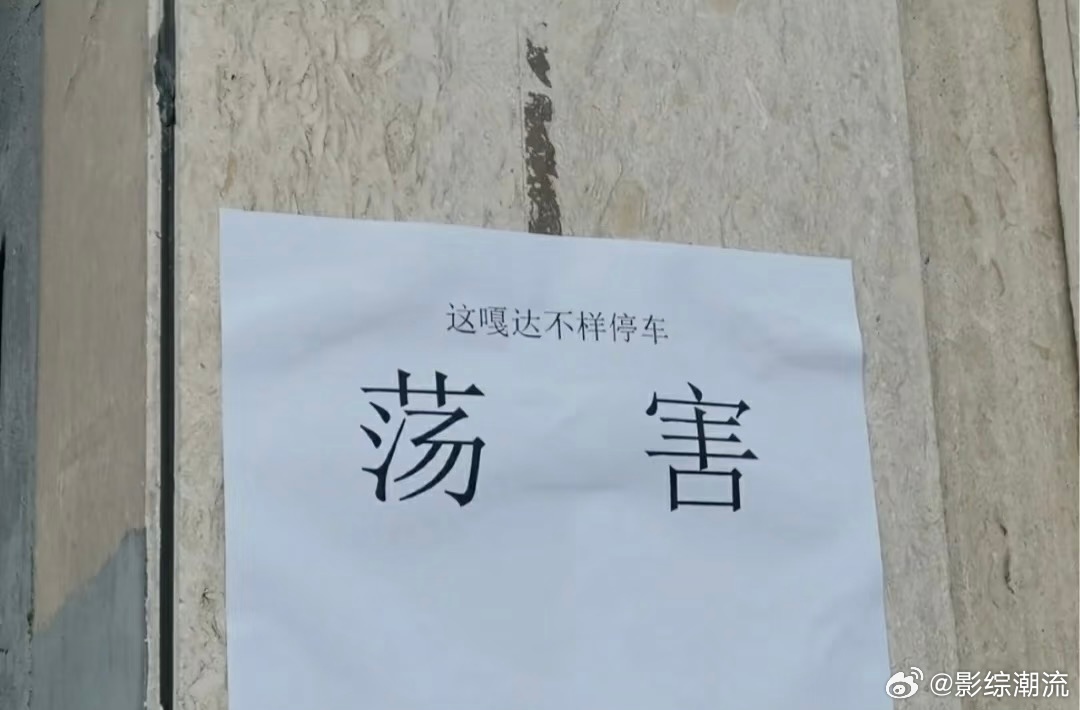 这嘎达不样停车
荡 害
@影综潮流